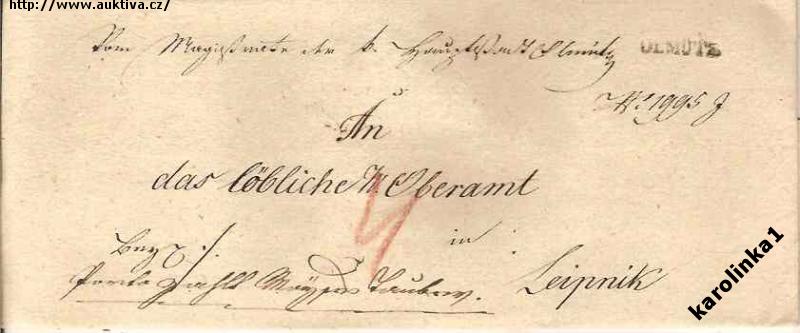 http://www.auktiva.cz/
Vom Magistrate der k. Hauptstadt Olmütz
OLMÜTZ
Nr. 1995 J
An
das löbliche Oberamt
4
in
Leipnik
Porto zahlt
karolinka1